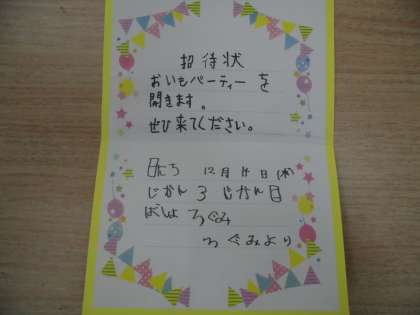 招待状
おいもパーティーを
開きます。
ぜひ来てください。
日にち 12月 日(水)
じかん 3じかん目
ばしょ ろぐみ
ろぐみより